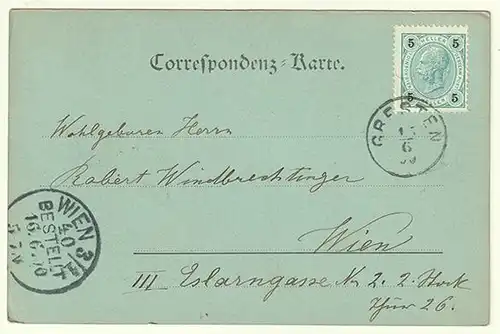 Correspondenz-Karte.
5 HELLER 5
5 5
GRESTEN
6
Wohlgeboren Herrn
Robert Windbrechtinger
Wien
III Eslarngasse No 2. 2. Stock
Thür 26.
WIEN 3/
40
BESTELLT
16.6.00